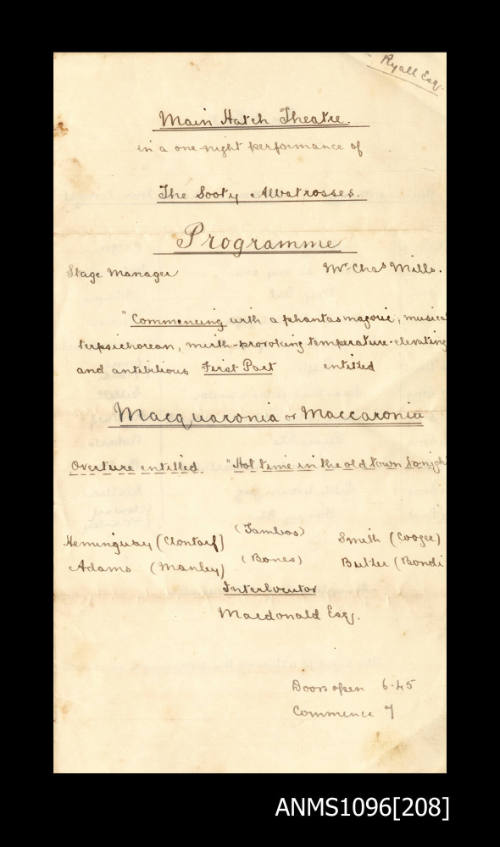 Ryall Esq.
Main Hatch Theatre.
in a one-night performance of
The Sooty Albatrosses.
Programme
Stage Manager Mr. Chas Mills.
"Commencing with a phantasmagoric, musical
terpsichorean, mirth-provoking temperature-elevating
and antibilious First Part entitled
Macquaronia or Maccaronia
Overture entitled "Hot time in the old town tonight
(Tambos)
Heminguay (Clontarf) Smith (Coogee)
Adams (Manley) (Bones) Butler (Bondi
Interlocutor
Macdonald Esq.
Doors open 6.45
Commence 7
ANMS1096[208]